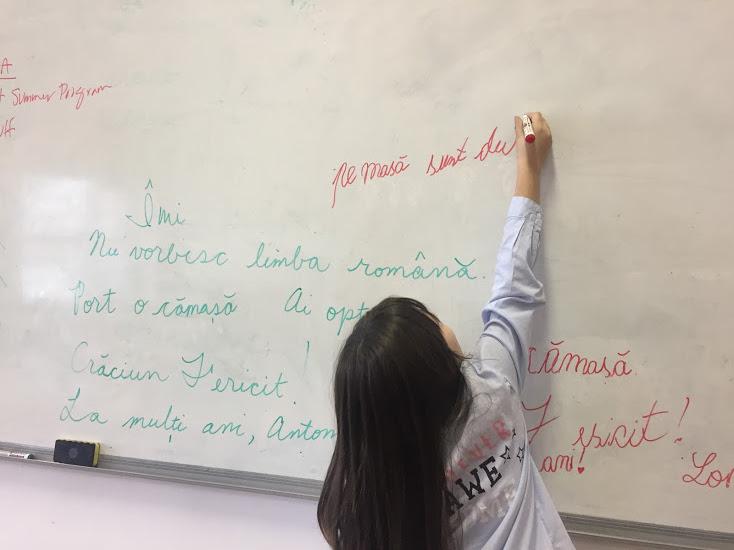 A
Summer Program
pe masă sunt du
Îmi
Nu vorbesc limba română.
Port o cămașă Ai opt
Crăciun Fericit!
La mulți ani, Anton
cămasă
Fericit!
ani!
Lor
AWE